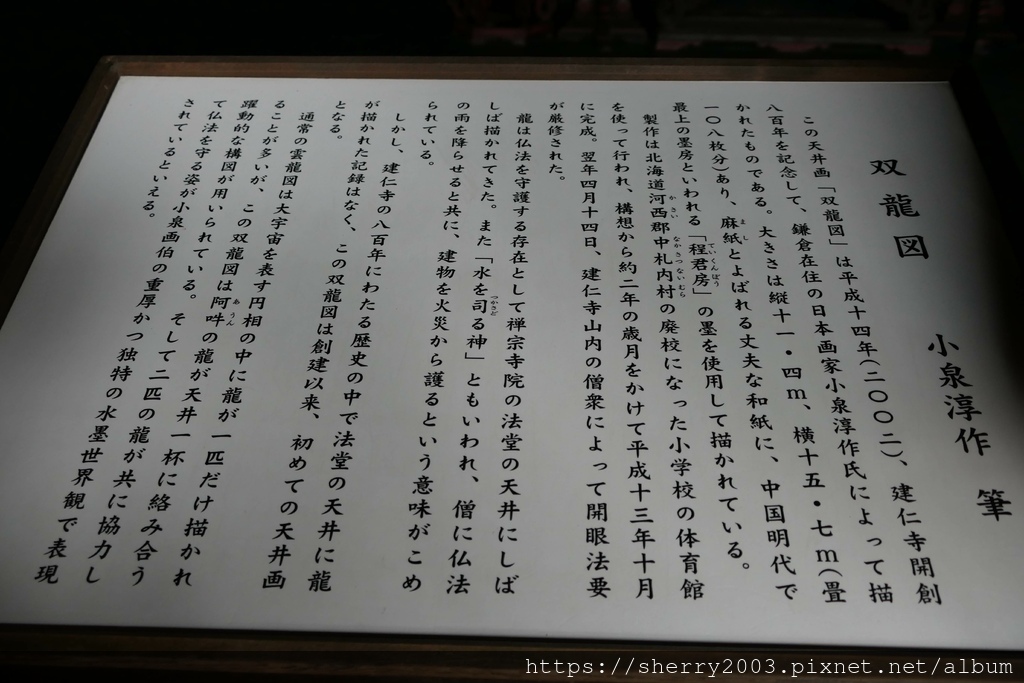 双龍図　小泉淳作　筆
この天井画「双龍図」は平成十四年(二〇〇二)、建仁寺開創
八百年を記念して、鎌倉在住の日本画家小泉淳作氏によって描
かれたものである。大きさは縦十一・四m、横十五・七m(畳
一〇八枚分)あり、麻紙とよばれる丈夫な和紙に、中国明代で
最上の墨房といわれる「程君房」の墨を使用して描かれている。
製作は北海道河西郡中札内村の廃校になった小学校の体育館
を使って行われ、構想から約二年の歳月をかけて平成十三年十月
に完成。翌年四月十四日、建仁寺山内の僧衆によって開眼法要
が厳修された。
龍は仏法を守護する存在として禅宗寺院の法堂の天井にしば
しば描かれてきた。また「水を司る神」ともいわれ、僧に仏法
の雨を降らせると共に、建物を火災から護るという意味がこめ
られている。
しかし、建仁寺の八百年にわたる歴史の中で法堂の天井に龍
が描かれた記録はなく、この双龍図は創建以来、初めての天井画
となる。
通常の雲龍図は大宇宙を表す円相の中に龍が一匹だけ描かれ
ることが多いが、この双龍図は阿吽の龍が天井一杯に絡み合う
躍動的な構図が用いられている。そして二匹の龍が共に協力し
て仏法を守る姿が小泉画伯の重厚かつ独特の水墨世界観で表現
されているといえる。
よし
ていくんぼう
かさい
なかさつないむら
つかさど
あうん
https://sherry2003.pixnet.net/album